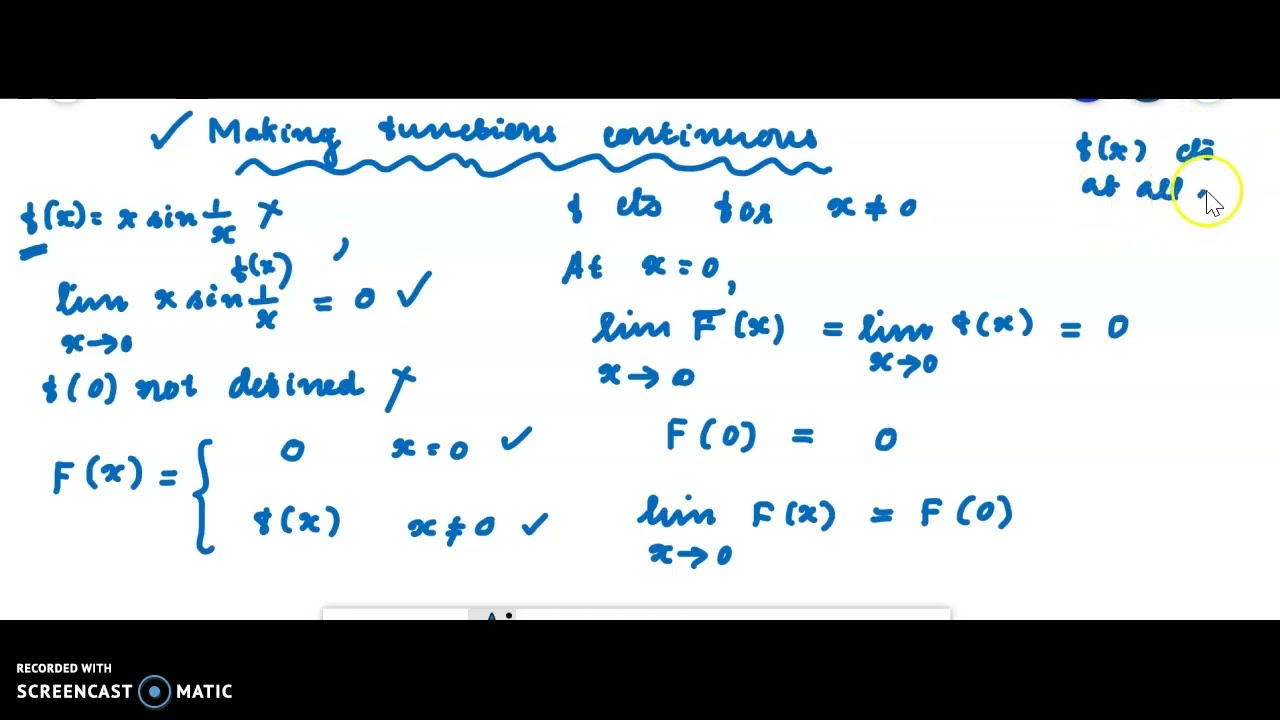 ✓ Making functions continuous
f(x) = x sin 1/x ✗ ,
lim x→0 x sin 1/x = 0 ✓
f(x)
f(0) not defined ✗
F(x) = { 0 x = 0 ✓
f(x) x ≠ 0 ✓
f cts for x ≠ 0
At x = 0,
lim x→0 F(x) = lim x→0 f(x) = 0
F(0) = 0
lim x→0 F(x) = F(0)
f(x) cts
at all
RECORDED WITH
SCREENCAST MATIC